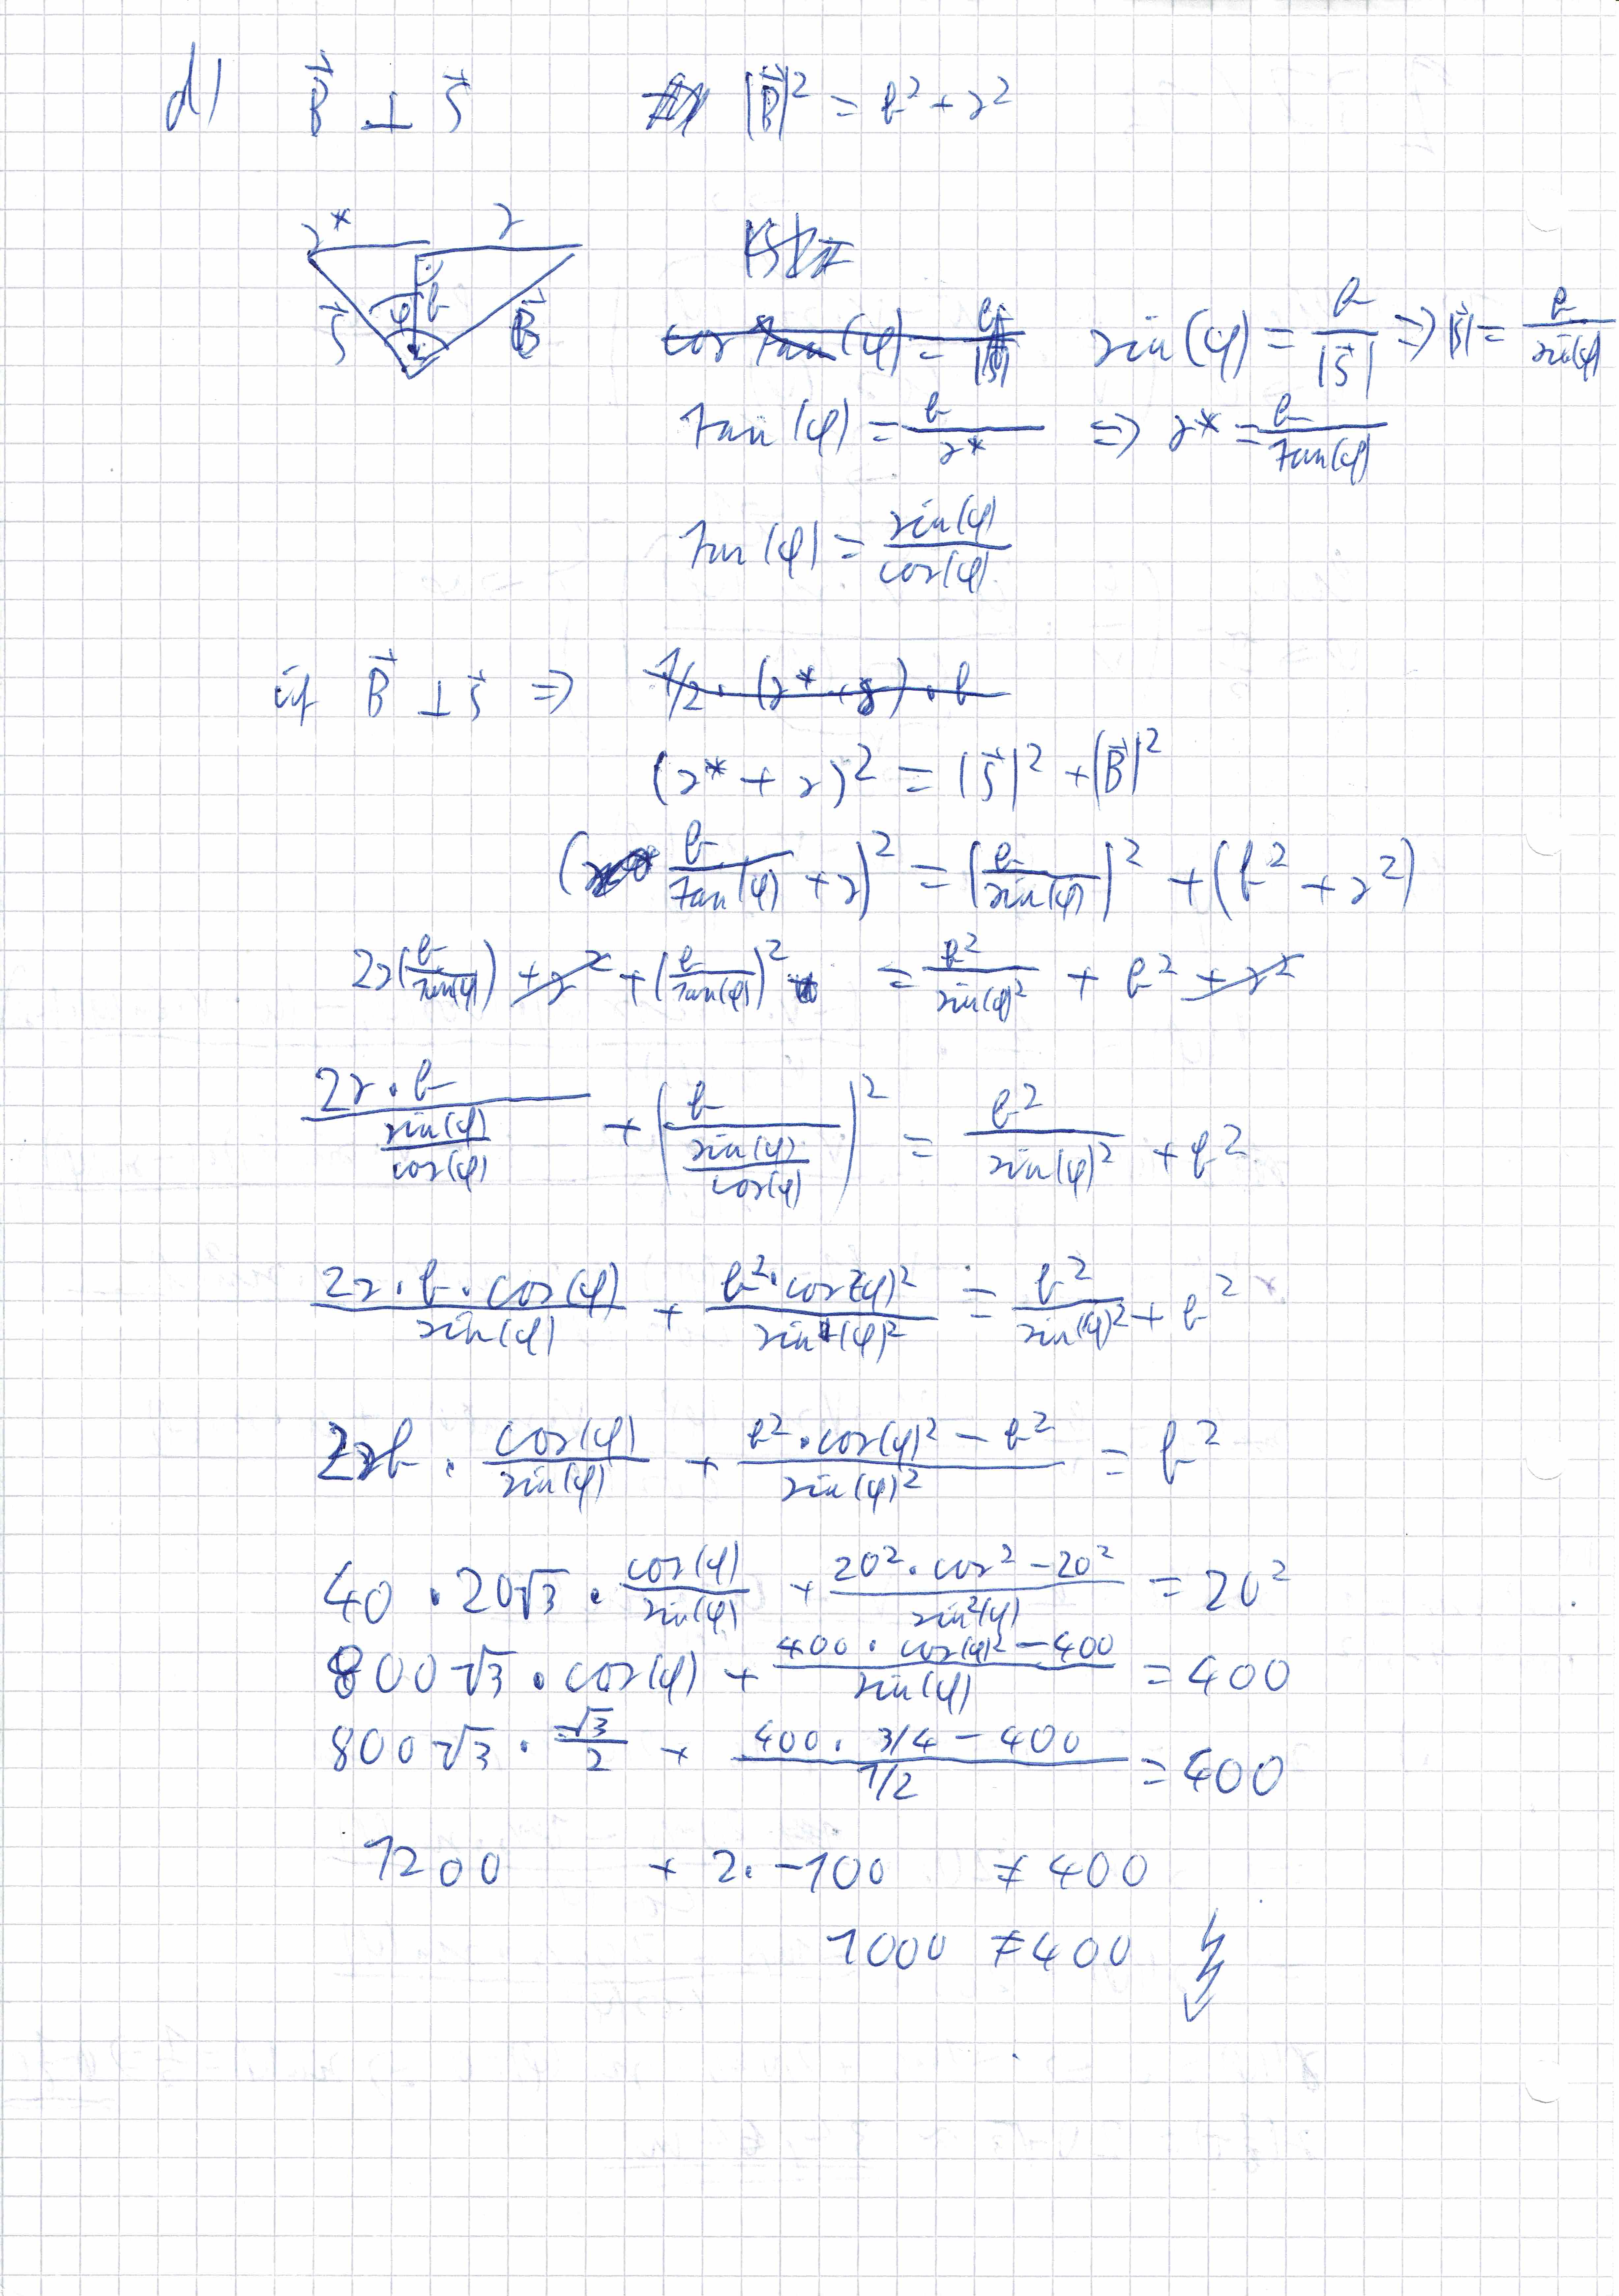 d) B⃗ ⊥ s⃗ |B⃗|² = b² + r²
r* r
s⃗ φ b B⃗
cos(φ) = b/|s⃗| sin(φ) = b/|s⃗| ⇒ |s⃗| = b/sin(φ)
tan(φ) = b/r* ⇒ r* = b/tan(φ)
tan(φ) = sin(φ)/cos(φ)
if B⃗ ⊥ s⃗ ⇒ 1/2 · (r* + r) · b
(r* + r)² = |s⃗|² + |B⃗|²
(b/tan(φ) + r)² = (b/sin(φ))² + (b² + r²)
2r(b/tan(φ)) + r² + (b/tan(φ))² = b²/sin(φ)² + b² + r²
2r·b/(sin(φ)/cos(φ)) + (b/(sin(φ)/cos(φ)))² = b²/sin(φ)² + b²
2r·b·cos(φ)/sin(φ) + b²·cos(φ)²/sin(φ)² = b²/sin(φ)² + b²
2rb · cos(φ)/sin(φ) + (b²·cos(φ)² − b²)/sin(φ)² = b²
40 · 20√3 · cos(φ)/sin(φ) + (20²·cos² − 20²)/sin²(φ) = 20²
800√3 · cos(φ) + (400·cos(φ)² − 400)/sin(φ) = 400
800√3 · √3/2 + (400 · 3/4 − 400)/1/2 = 400
1200 + 2·−100 ≠ 400
1000 ≠ 400